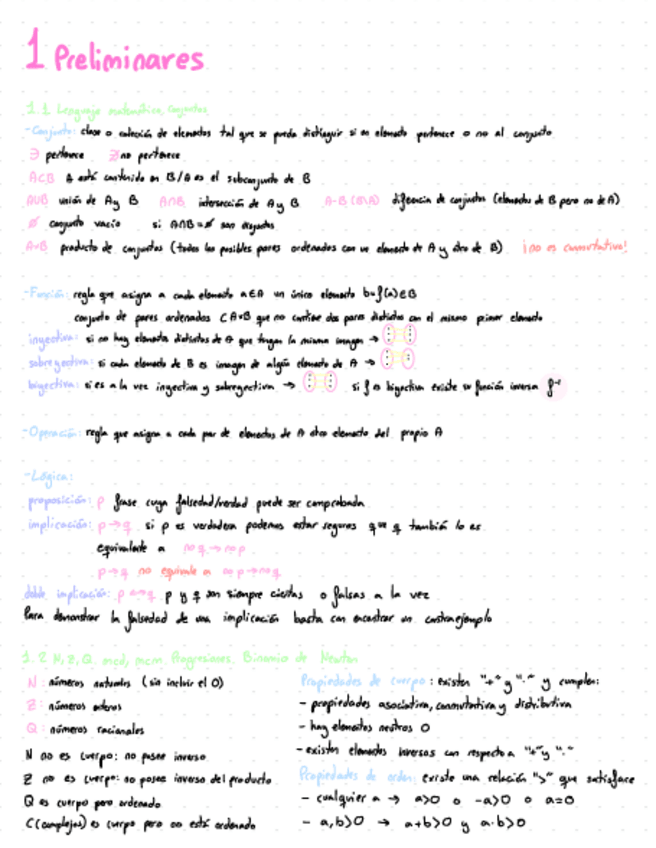 1 Preliminares
1.1 Lenguaje matemático, conjuntos
-Conjunto: clase o colección de elementos tal que se pueda distinguir si un elemento pertenece o no al conjunto
∋ pertenece ∌ no pertenece
A⊂B A está contenido en B/A es el subconjunto de B
A∪B unión de A y B A∩B intersección de A y B A-B (B\A) diferencia de conjuntos (elementos de B pero no de A)
∅ conjunto vacío si A∩B=∅ son disjuntos
A×B producto de conjuntos (todos los posibles pares ordenados con un elemento de A y otro de B) ¡no es conmutativo!
-Función: regla que asigna a cada elemento a∈A un único elemento b=f(a)∈B
conjunto de pares ordenados ⊂A×B que no contiene dos pares distintos con el mismo primer elemento
inyectiva: si no hay elementos distintos de A que tengan la misma imagen →
sobreyectiva: si cada elemento de B es imagen de algún elemento de A →
biyectiva: si es a la vez inyectiva y sobreyectiva → si f es biyectiva existe su función inversa f⁻¹
-Operación: regla que asigna a cada par de elementos de A otro elemento del propio A
-Lógica:
proposición: p frase cuya falsedad/verdad puede ser comprobada
implicación: p→q si p es verdadera podemos estar seguros que q también lo es
equivalente a no q → no p
p→q no equivale a no p→no q
doble implicación: p↔q p y q son siempre ciertas o falsas a la vez
Para demostrar la falsedad de una implicación basta con encontrar un contraejemplo
1.2 N, Z, Q. mcd, mcm. Progresiones. Binomio de Newton
N: números naturales (sin incluir el 0)
Z: números enteros
Q: números racionales
N no es cuerpo: no posee inverso
Z no es cuerpo: no posee inverso del producto
Q es cuerpo pero ordenado
C (complejos) es cuerpo pero no está ordenado
Propiedades de cuerpo: existen "+" y "·" y cumplen:
- propiedades asociativa, conmutativa y distributiva
- hay elementos neutros 0
- existen elementos inversos con respecto a "+" y "·"
Propiedades de orden: existe una relación ">" que satisface
- cualquier a → a>0 o -a>0 o a=0
- a,b>0 → a+b>0 y a·b>0